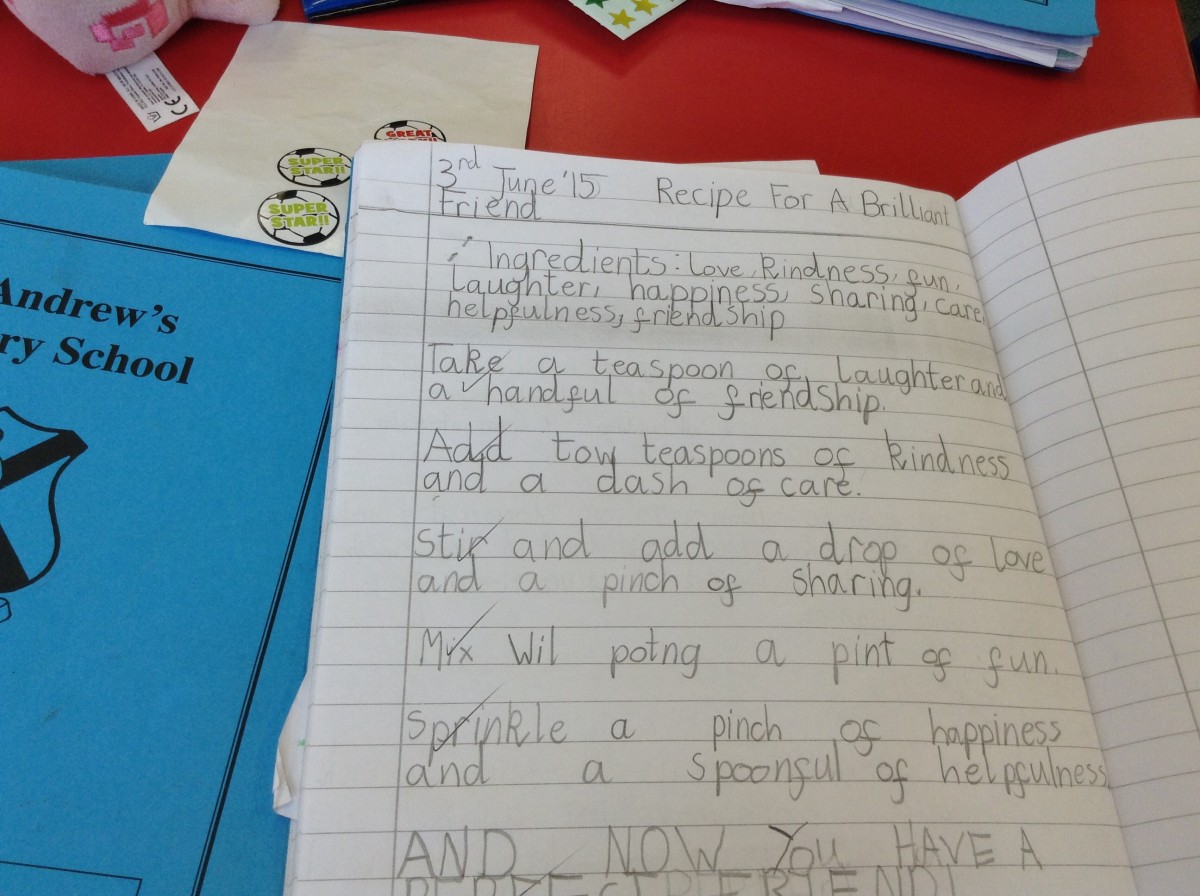 GREAT
SUPER
STAR!!
SUPER
STAR!!
CE
Andrew's
ry School
3rd June '15 Recipe For A Brilliant
Friend
Ingredients: love, kindness, fun,
laughter, happiness, sharing, care,
helpfulness, friendship
Take a teaspoon of laughter and
a handful of friendship.
Add tow teaspoons of kindness
and a dash of care.
Stir and add a drop of love
and a pinch of sharing.
Mix Wil potng a pint of fun.
Sprinkle a pinch of happiness
and a spoonful of helpfulness
AND NOW YOU HAVE A